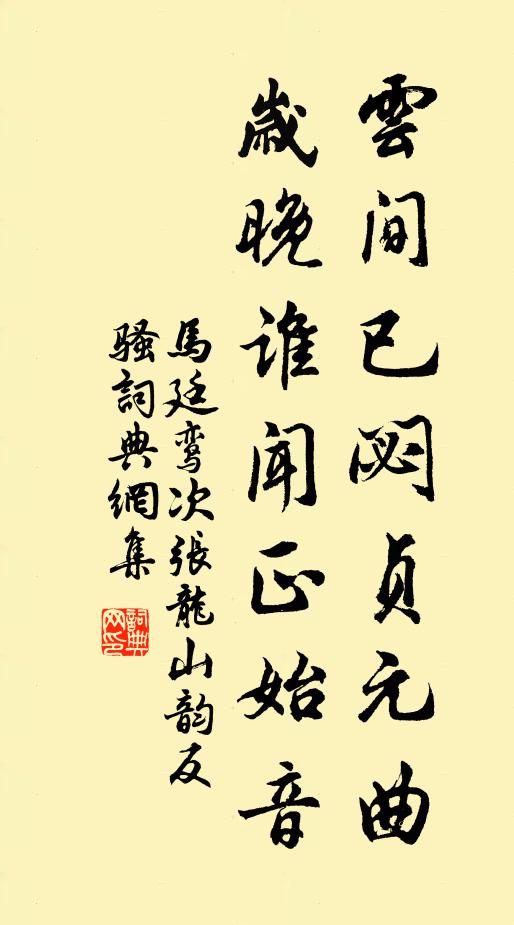 雲間已閟貞元曲
歲晚誰聞正始音
馬廷鸞次張龍山韵反
騷詞典網集
詞典
网印